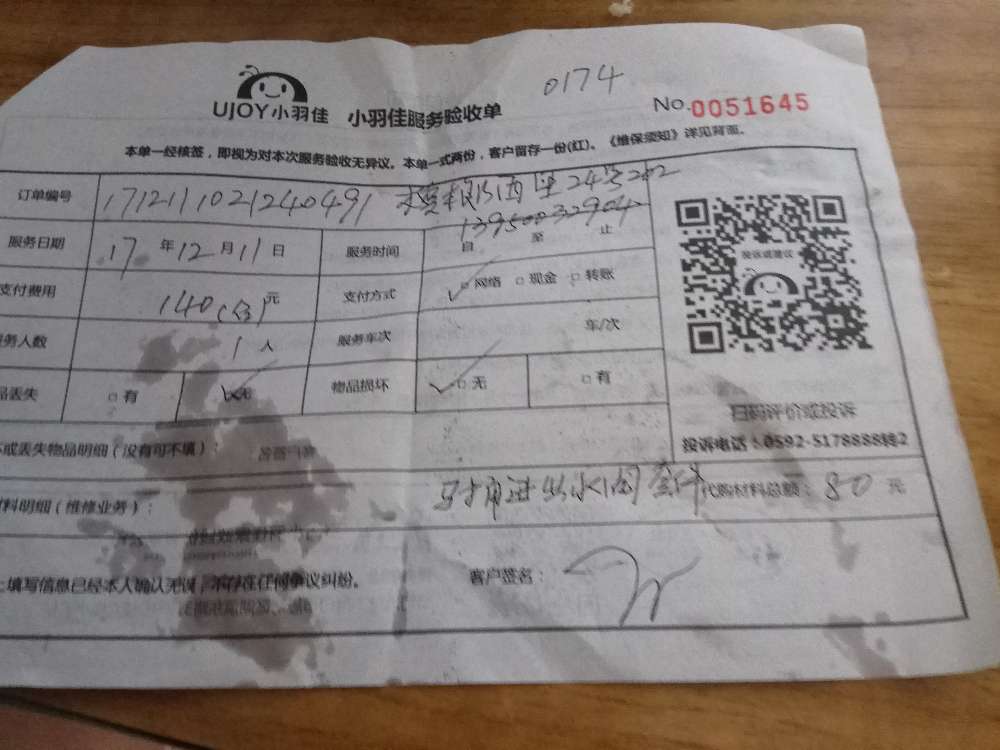 0174
UJOY小羽佳 小羽佳服务验收单 No.0051645
本单一经核签，即视为对本次服务验收无异议。本单一式两份，客户留存一份(红)、《维保须知》详见背面。
订单编号 1712111021240491 西里24号202
13950032904
服务日期 17年12月11日 服务时间 自 至 止
支付费用 140(全)元 支付方式 ✓□网络 □现金 □转账
务人数 1人 服务车次 车/次
品丢失 □有 ✓无 物品损坏 ✓□无 □有
投诉或建议
扫码评价或投诉
投诉电话：0592-5178888转2
坏或丢失物品明细（没有可不填）：
料明细（维修业务）： 马桶进出水阀套件 代购材料总额：80元
上填写信息已经本人确认无误，不存在任何争议纠纷。 客户签名：